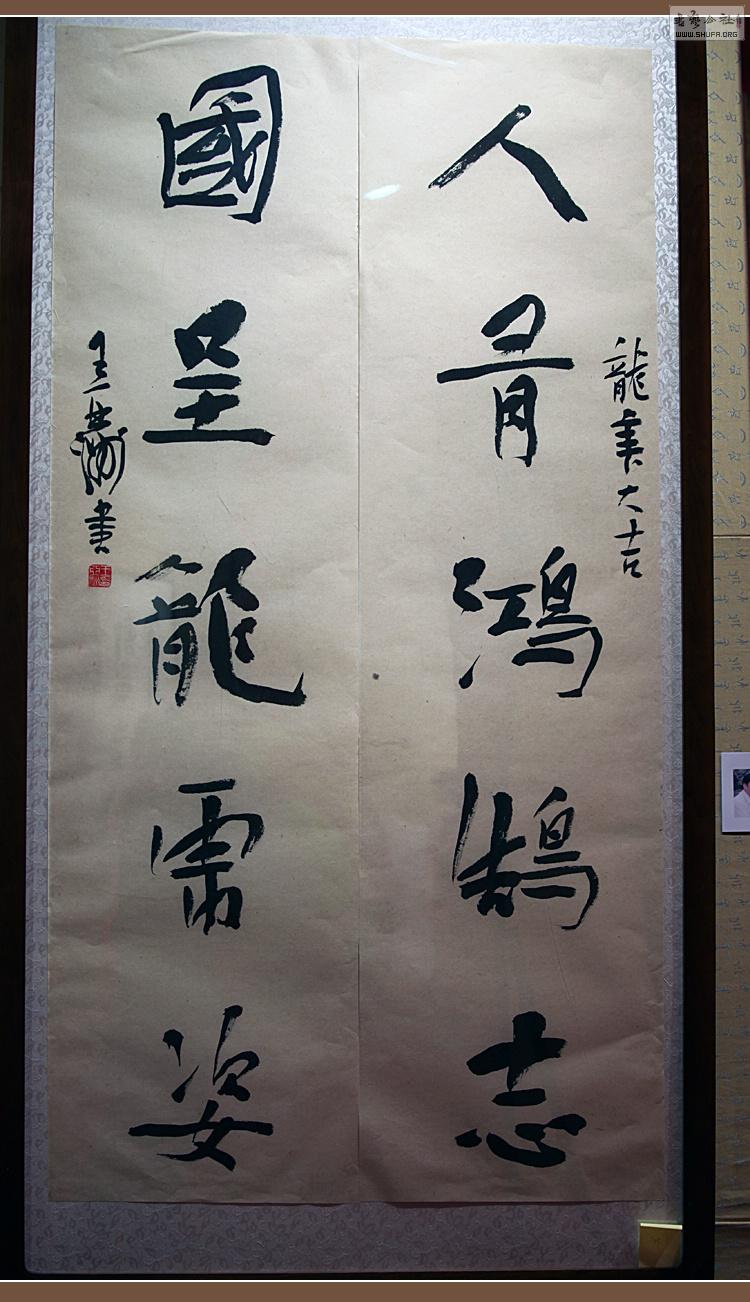 龍年大吉
人有鴻鵠志
國呈龍虎姿
王 書
書藝公社
WWW.SHUFA.ORG